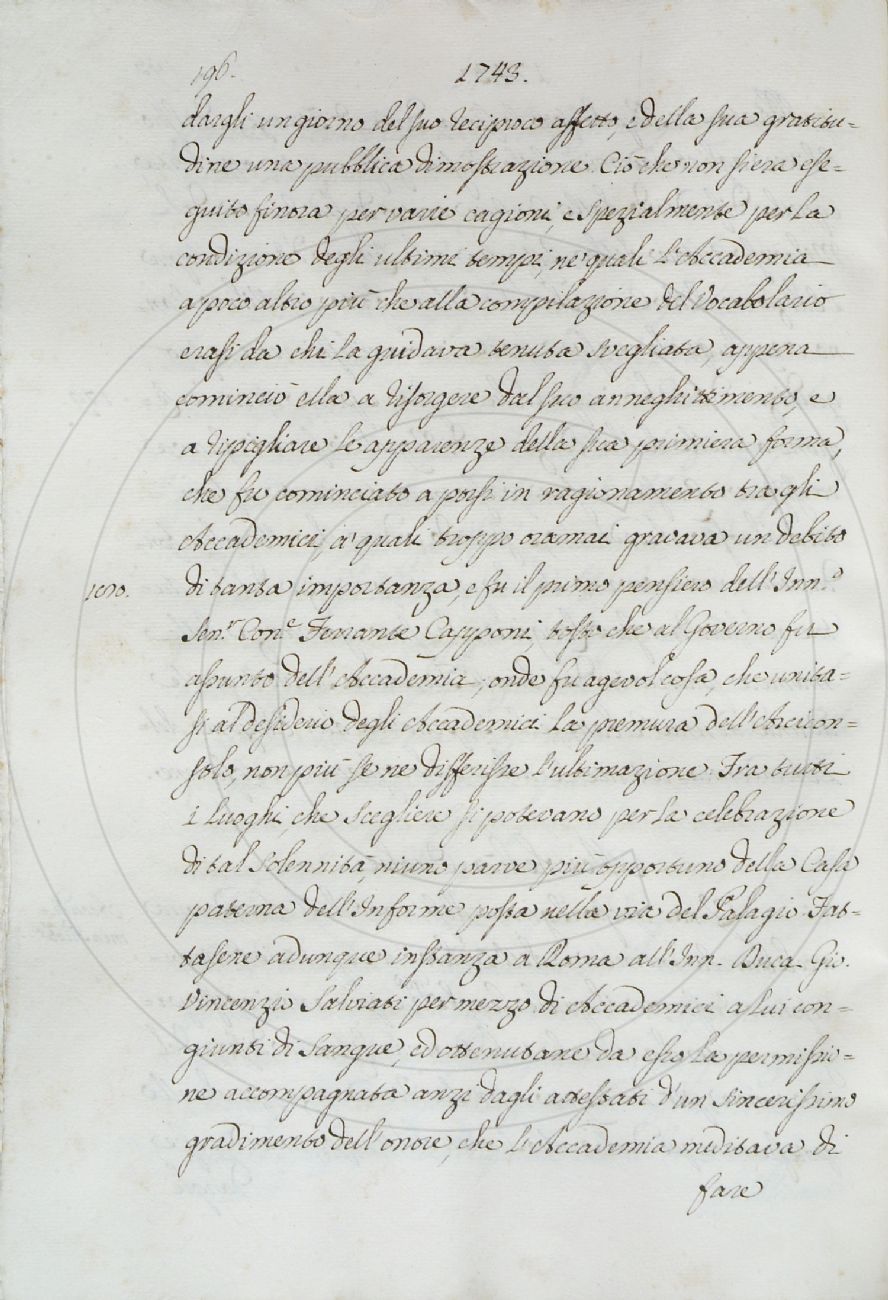 196.
1743.
dargli un giorno del suo reciproco affetto, e della sua gratitu=
dine una pubblica dimostrazione. Ciò che non si era ese=
guito finora per varie cagioni, e spezialmente per la
condizione degli ultimi tempi, ne' quali l'Accademia
a poco altro più che alla compilazione del Vocabolario
erasi da chi la guidava tenuta svegliata, appena
cominciò ella a risorgere dal suo anneghittimento, e
a ripigliare le apparenze della sua primiera forma,
che fu cominciato a porsi in ragionamento tra gli
Accademici, a' quali troppo oramai gravava un debito
di tanta importanza, e fu il primo pensiero dell'Inn.º
Sen.r Con.e Ferrante Capponi, tosto che al Governo fu
assunto dell'Accademia; onde fu agevol cosa, che unita=
si al desiderio degli Accademici la premura dell'Arcicon=
solo, non più se ne differisse l'ultimazione. Fra tutti
i luoghi, che scegliere si potevano per la celebrazione
di tal solennità, niuno parve più opportuno della Casa
paterna dell'Informe posta nella via del Palagio. Fat=
tasene adunque instanza a Roma all'Inn. Duca Gio.
Vincenzio Salviati per mezzo di Accademici a lui con=
giunti di sangue, ed ottenutane da esso la permissio=
ne accompagnata anzi dagli attestati d'un sincerissimo
gradimento dell'onore, che l'Accademia meditava di
fare